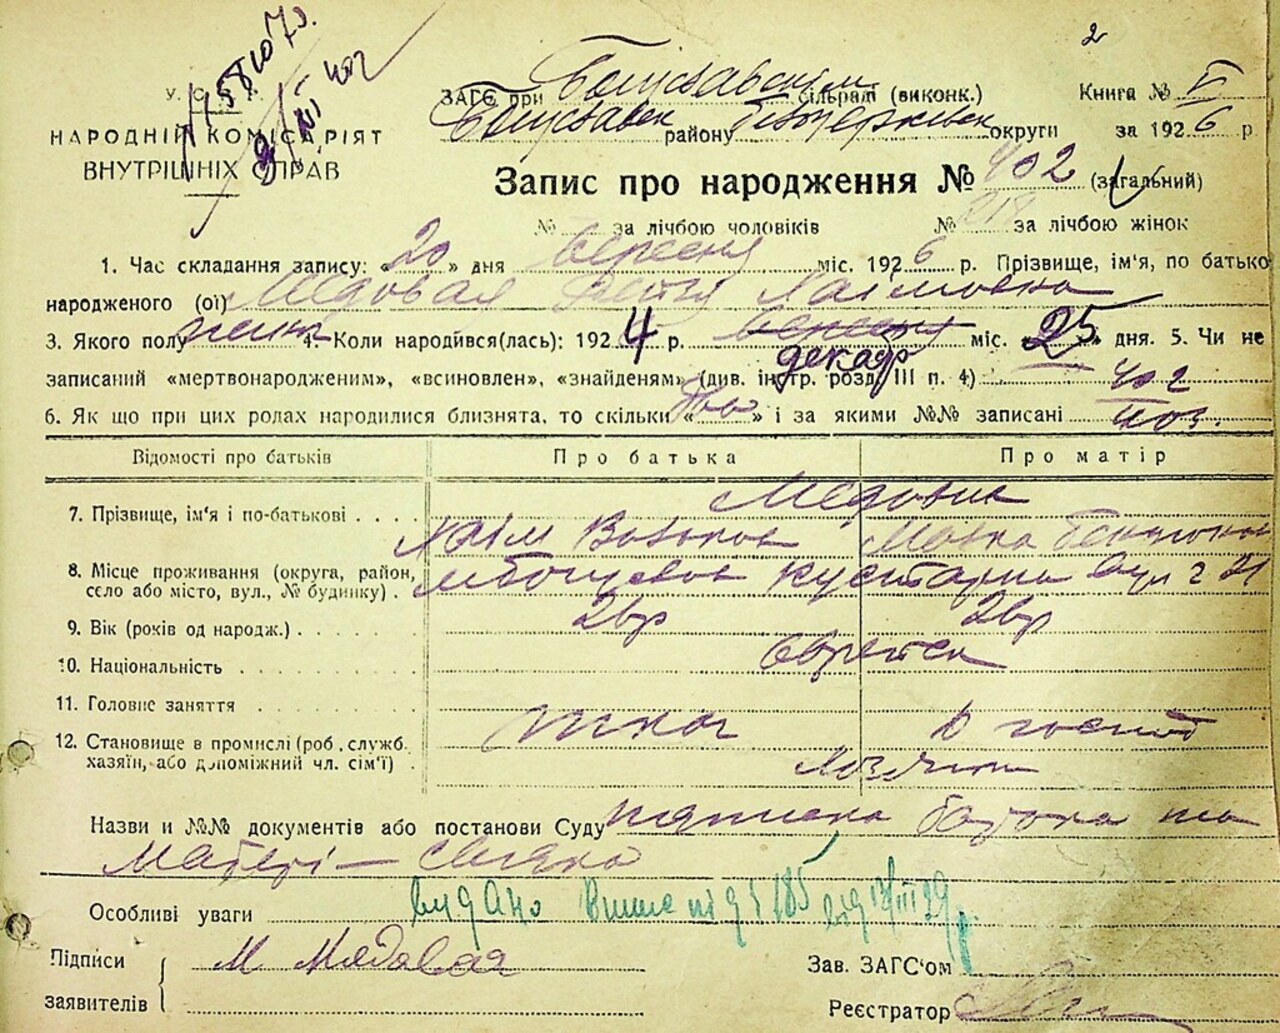 2
ЗАГС при Богуславськім сільраді (виконк.) Книга № V
У. С. Р. Р.
НАРОДНІЙ КОМІСАРІЯТ
ВНУТРІШНІХ СПРАВ
Богуславськ району Білоцерківськ округи за 1926 р.
Запис про народження № 402 (загальний)
№ за лічбою чоловіків № 218 за лічбою жінок
1. Час складання запису: «20» дня вересня міс. 1926 р. Прізвище, ім'я, по батькові
народженого (ої) Медовая Хаімовна
3. Якого полу жінк 4. Коли народився(лась): 1924 р. декабр міс. 25 дня. 5. Чи не
записаний «мертвонародженим», «всиновлен», «знайденям» (див. інстр. розд. III п. 4) 402
6. Як що при цих родах народилися близнята, то скільки « » і за якими №№ записані 403.
Відомості про батьків Про батька Про матір
Медовая
7. Прізвище, ім'я і по-батькові
Хаім
8. Місце проживання (округа, район,
село або місто, вул., № будинку) м Богуслав вул ч 21
9. Вік (років од народж.) 2вр 2вр
10. Національність Єврейск
11. Головне заняття
ткач
12. Становище в промислі (роб., служб.
хазяїн, або допоміжний чл. сім'ї) Хозяїн
Назви и №№ документів або постанови Суду підписка батька та
матері —
Особливі уваги видано 185 від 13/III 39 р
Підписи М Мядовая Зав. ЗАГС'ом
заявителів Реєстратор